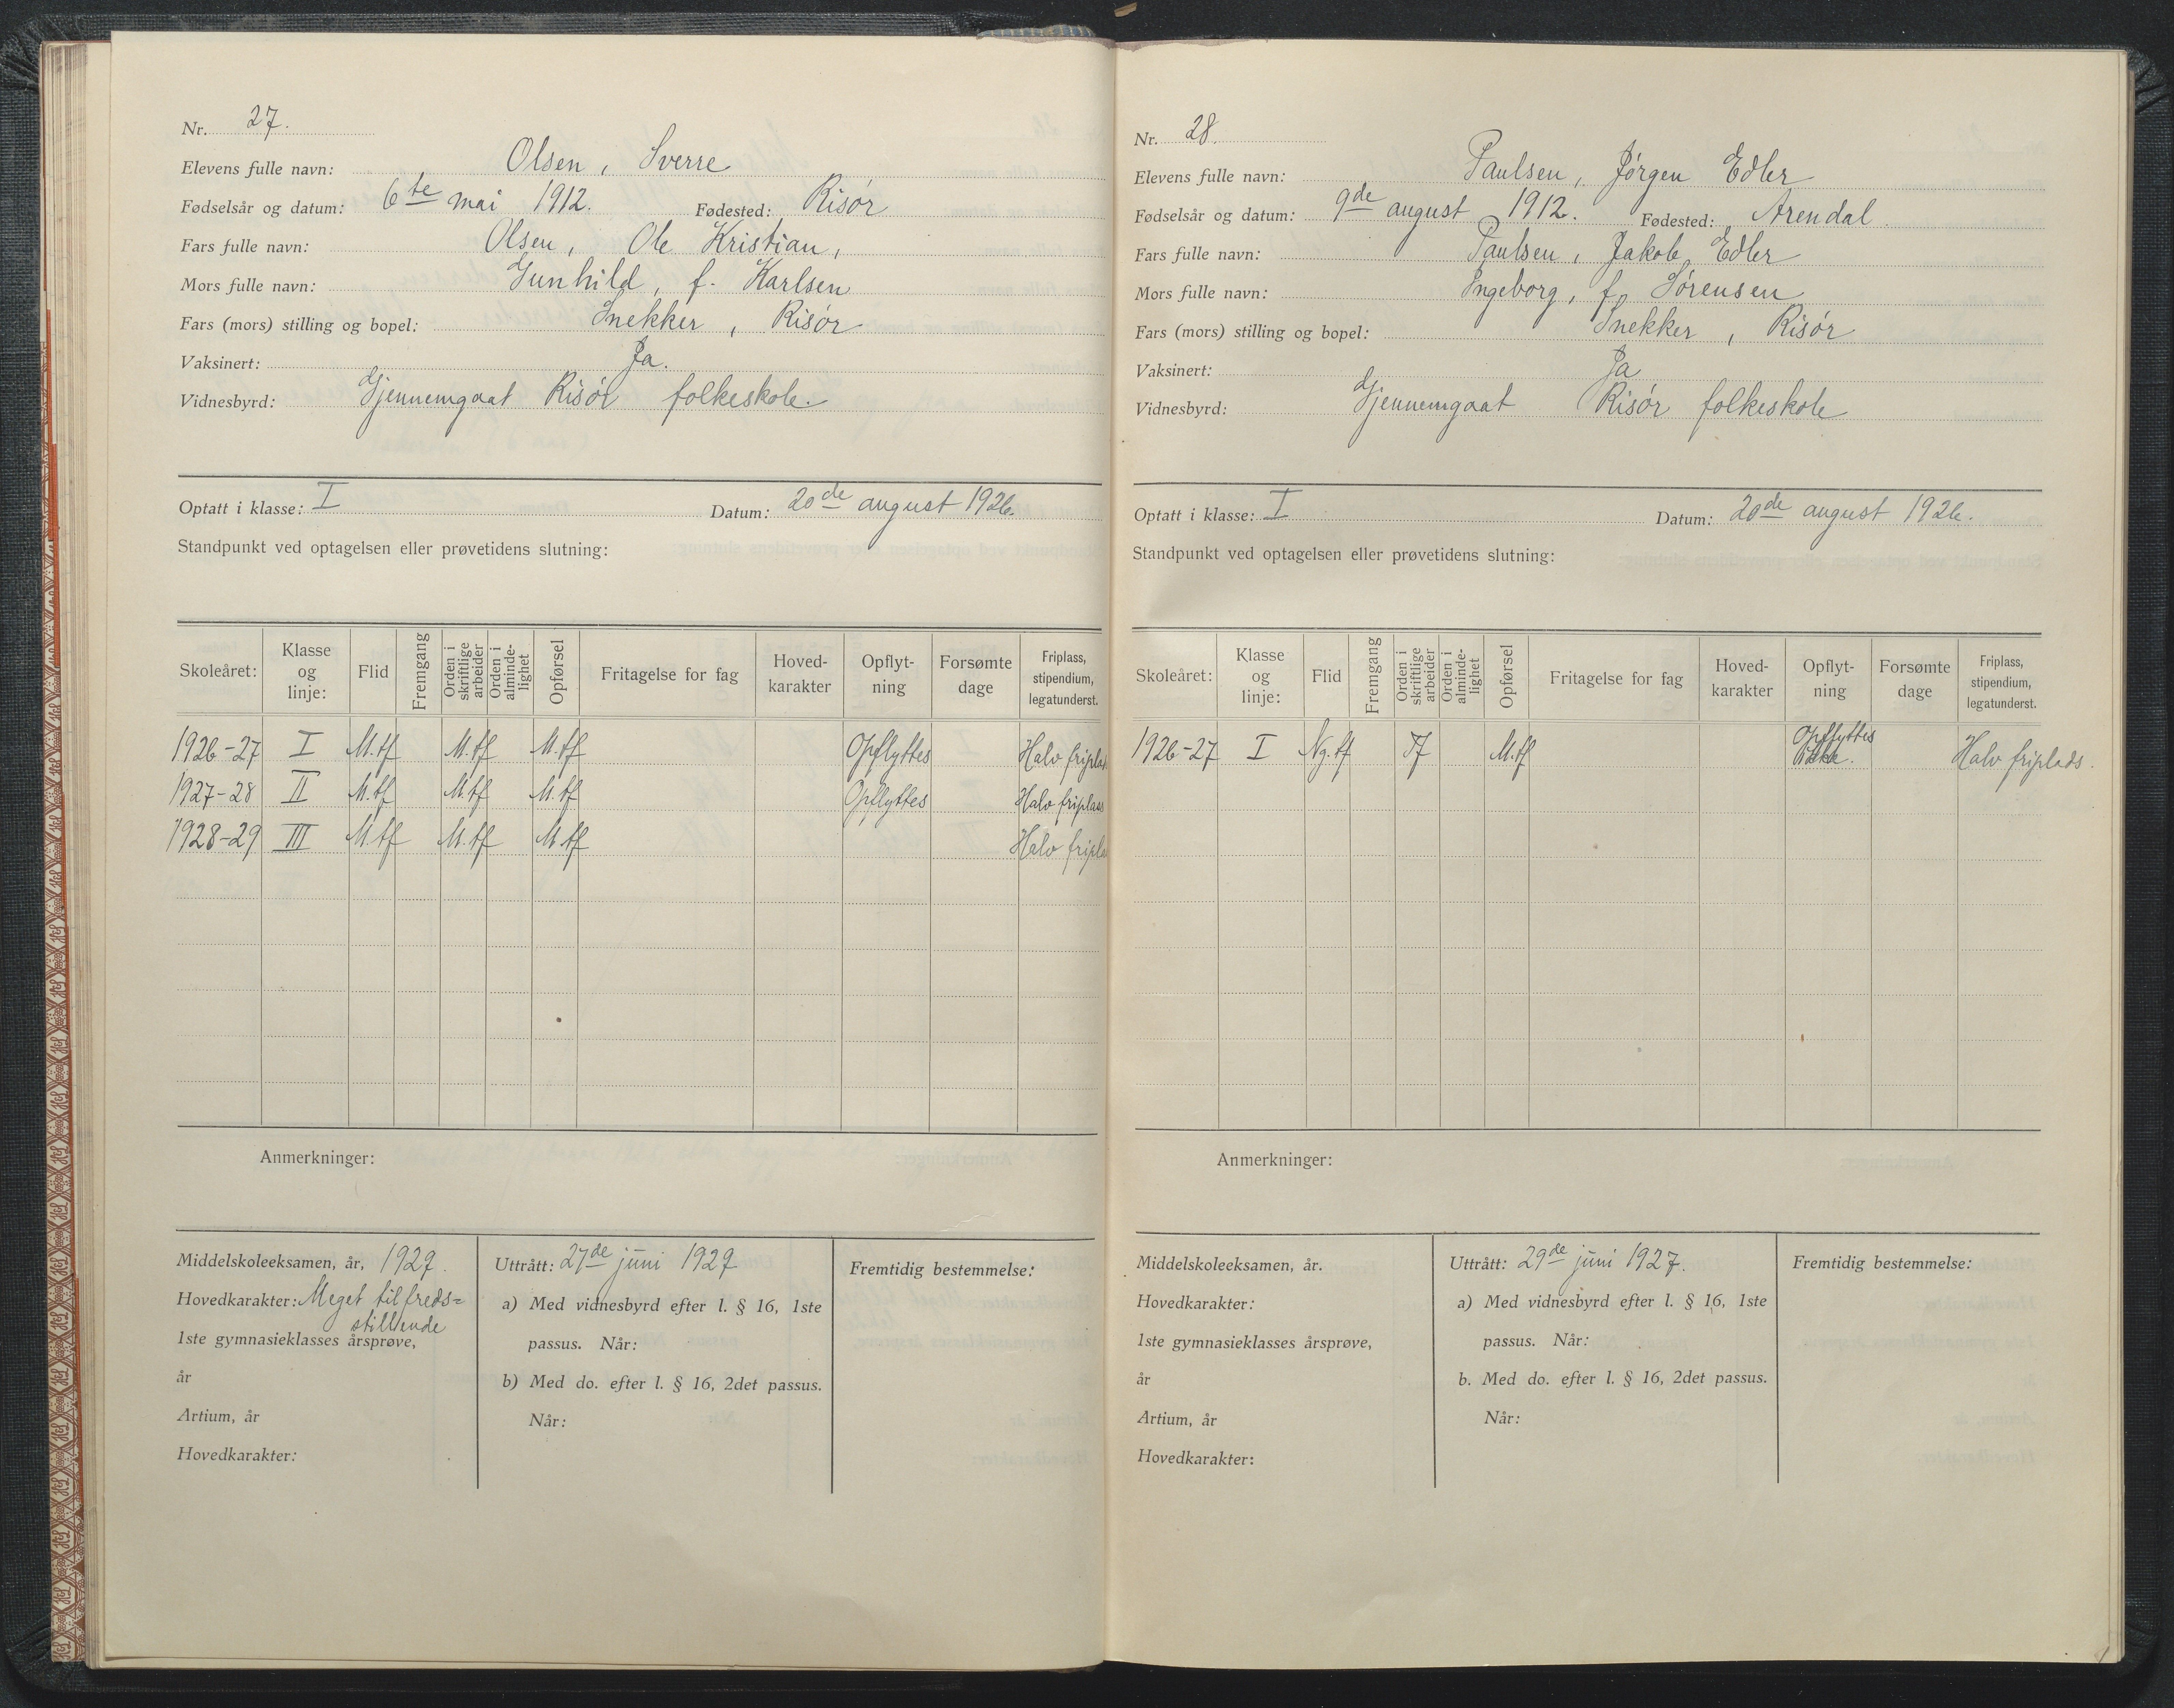 Nr. 27.
Elevens fulle navn: Olsen, Sverre
Fødselsår og datum: 6te mai 1912. Fødested: Risør
Fars fulle navn: Olsen, Ole Kristian,
Mors fulle navn: Gunhild, f. Karlsen
Fars (mors) stilling og bopel: Snekker, Risør
Vaksinert: Ja.
Vidnesbyrd: Gjennemgaat Risør folkeskole.
Optatt i klasse: I Datum: 20de august 1926.
Standpunkt ved optagelsen eller prøvetidens slutning:
Skoleåret: Klasse og linje: Flid Fremgang Orden i skriftlige arbeider Orden i alminde-lighet Opførsel Fritagelse for fag Hoved-karakter Opflyt-ning Forsømte dage Friplass, stipendium, legatunderst.
1926-27 I M.tf M.tf M.tf Opflyttes Halv friplass
1927-28 II M.tf M.tf M.tf Opflyttes Halv friplass
1928-29 III M.tf M.tf M.tf Halv fripla
Anmerkninger:
Middelskoleeksamen, år, 1929.
Hovedkarakter: Meget tilfreds=
stillende
1ste gymnasieklasses årsprøve,
år
Artium, år
Hovedkarakter:
Uttrått: 27de juni 1929
a) Med vidnesbyrd efter l. § 16, 1ste
passus. Når:
b) Med do. efter l. § 16, 2det passus.
Når:
Fremtidig bestemmelse:
Nr. 28.
Elevens fulle navn: Paulsen, Jørgen Edler
Fødselsår og datum: 9de august 1912. Fødested: Arendal
Fars fulle navn: Paulsen, Jakob Edler
Mors fulle navn: Ingeborg, f. Sørensen
Fars (mors) stilling og bopel: Snekker, Risør
Vaksinert: Ja
Vidnesbyrd: Gjennemgaat Risør folkeskole
Optatt i klasse: I Datum: 20de august 1926.
Standpunkt ved optagelsen eller prøvetidens slutning:
Skoleåret: Klasse og linje: Flid Fremgang Orden i skriftlige arbeider Orden i alminde-lighet Opførsel Fritagelse for fag Hoved-karakter Opflyt-ning Forsømte dage Friplass, stipendium, legatunderst.
1926-27 I Ng.tf Tf M.tf Opflyttes ikke. Halv friplads.
Anmerkninger:
Middelskoleeksamen, år.
Hovedkarakter:
1ste gymnasieklasses årsprøve,
år
Artium, år
Hovedkarakter:
Uttrått: 29de juni 1927.
a) Med vidnesbyrd efter l. § 16, 1ste
passus. Når:
b. Med do. efter l. § 16, 2det passus.
Når:
Fremtidig bestemmelse: